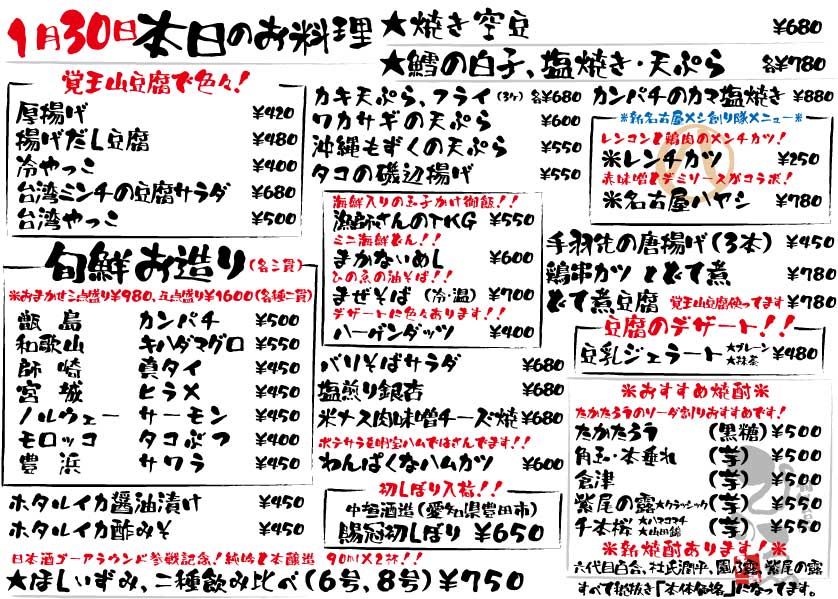 1月30日本日のお料理
★焼き空豆 ¥680
★鱈の白子、塩焼き・天ぷら 各¥780
覚王山豆腐で色々!
厚揚げ ¥420
揚げだし豆腐 ¥480
冷やっこ ¥400
台湾ミンチの豆腐サラダ ¥680
台湾やっこ ¥500
旬鮮お造り(各二貫)
※おまかせ三点盛り¥980、五点盛り¥1600(各種二貫)
甑島 カンパチ ¥500
和歌山 キハダマグロ ¥550
師崎 真タイ ¥450
宮城 ヒラメ ¥450
ノルウェー サーモン ¥450
モロッコ タコぶつ ¥400
豊浜 サワラ ¥450
ホタルイカ醤油漬け ¥450
ホタルイカ酢みそ ¥450
日本酒ゴーアラウンド参戦記念!純吟と本醸造 90ml×2杯!!
★ほしいずみ、二種飲み比べ(6号、8号)¥750
カキ天ぷら、フライ(3ヶ) 各¥680
ワカサギの天ぷら ¥500
沖縄もずくの天ぷら ¥550
タコの磯辺揚げ ¥550
海鮮入りの玉子かけ御飯!!
漁師さんのTKG ¥550
ミニ海鮮どん!!
まかないめし ¥600
ひの魚の油そば!!
まぜそば(冷・温) ¥700
デザートに色々あります!!
ハーゲンダッツ ¥400
バリそばサラダ ¥680
塩煎り銀杏 ¥680
米ナス肉味噌チーズ焼 ¥680
ポテサラを自家製ハムではさんでます!!
わんぱくなハムカツ ¥600
初しぼり入荷!!
中垣酒造(愛知県豊田市)
賜冠初しぼり ¥650
カンパチのカマ塩焼き ¥880
※新名古屋メシ創り隊メニュー※
レンコンと鶏肉のメンチカツ!
※レンチカツ ¥250
赤味噌とデミソースがコラボ!
※名古屋ハヤシ ¥780
手羽先の唐揚げ(3本) ¥450
鶏串カツ とどて煮 ¥780
どて煮豆腐 覚王山豆腐使ってます ¥780
豆腐のデザート!!
豆乳ジェラート ★プレーン ★抹茶 ¥480
※おすすめ焼酎※
たかたろうのソーダ割りおすすめです!
たかたろう (黒糖) ¥500
角玉・本垂れ (芋) ¥500
倉津 (芋) ¥500
紫尾の露★クラッシック(芋) ¥550
千本桜 ★ハマコマチ ★山田錦 (芋) ¥550
※新焼酎あります!※
六代目百合、杜氏潤平、園乃露、紫尾の露
すべて税抜き「本体価格」になってます。